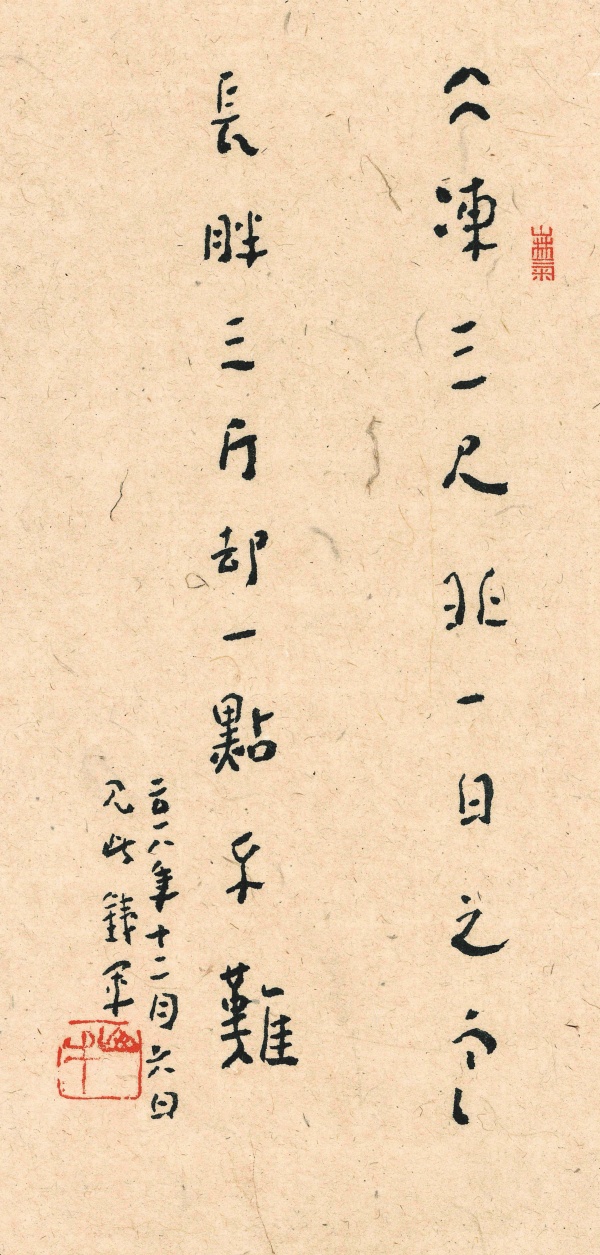 仌凍三尺非一日之寒
長胖三斤却一點不難
二〇一八年十二月六日